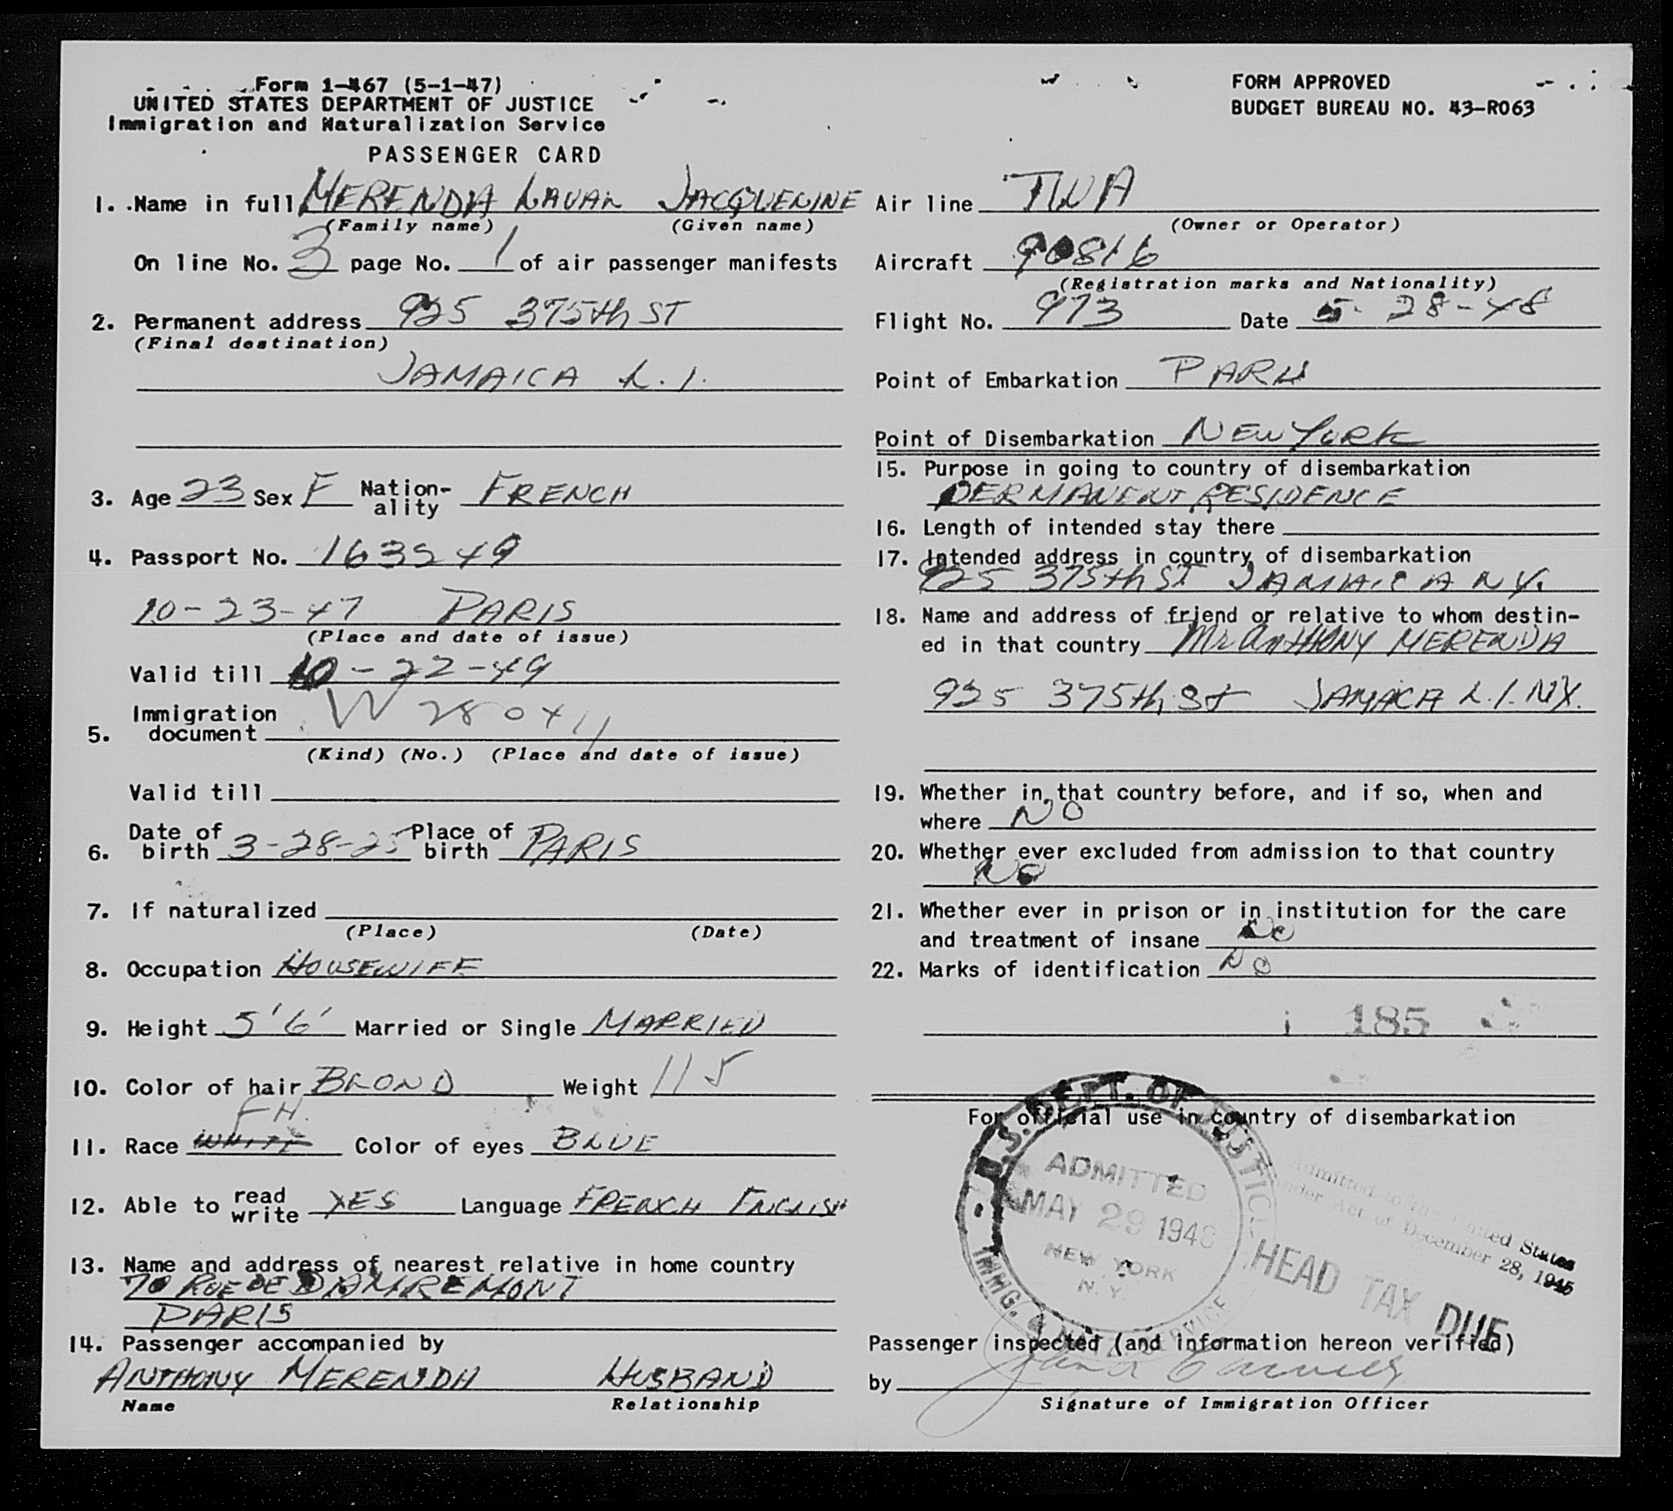 Form 1-467 (5-1-47)
UNITED STATES DEPARTMENT OF JUSTICE
Immigration and Naturalization Service
PASSENGER CARD
FORM APPROVED
BUDGET BUREAU NO. 43-R063
1. Name in full MERENDA LAVAL JACQUELINE
(Family name) (Given name)
On line No. 3 page No. 1 of air passenger manifests
2. Permanent address 925 375th ST
(Final destination)
JAMAICA L.I.
3. Age 23 Sex F Nation-ality FRENCH
4. Passport No. 163549
10-23-47 PARIS
(Place and date of issue)
Valid till 10-22-49
5. Immigration document W 28041
(Kind) (No.) (Place and date of issue)
Valid till
6. Date of birth 3-28-25 Place of birth PARIS
7. If naturalized
(Place) (Date)
8. Occupation HOUSEWIFE
9. Height 5'6' Married or Single MARRIED
10. Color of hair BLOND Weight 115
FH.
11. Race WHITE Color of eyes BLUE
12. Able to read write YES Language FRENCH ENGLISH
13. Name and address of nearest relative in home country
70 RUE DE DAMREMONT
PARIS
14. Passenger accompanied by
ANTHONY MERENDA HUSBAND
Name Relationship
Air line TWA
(Owner or Operator)
Aircraft 90816
(Registration marks and Nationality)
Flight No. 973 Date 5-28-48
Point of Embarkation PARIS
Point of Disembarkation NEW YORK
15. Purpose in going to country of disembarkation
PERMANENT RESIDENCE
16. Length of intended stay there
17. Intended address in country of disembarkation
925 375th ST JAMAICA N.Y.
18. Name and address of friend or relative to whom destin-
ed in that country Mr ANTHONY MERENDA
925 375th St JAMAICA L.I. N.Y.
19. Whether in that country before, and if so, when and
where NO
20. Whether ever excluded from admission to that country
NO
21. Whether ever in prison or in institution for the care
and treatment of insane No
22. Marks of identification NO
185
For official use in country of disembarkation
U.S. DEPT. OF JUSTICE
ADMITTED
MAY 29 1948
NEW YORK
N.Y.
IMMG. & NATZ. SERVICE
Admitted to the United States
under Act of December 28, 1945
HEAD TAX DUE
Passenger inspected (and information hereon verified)
by
Signature of Immigration Officer